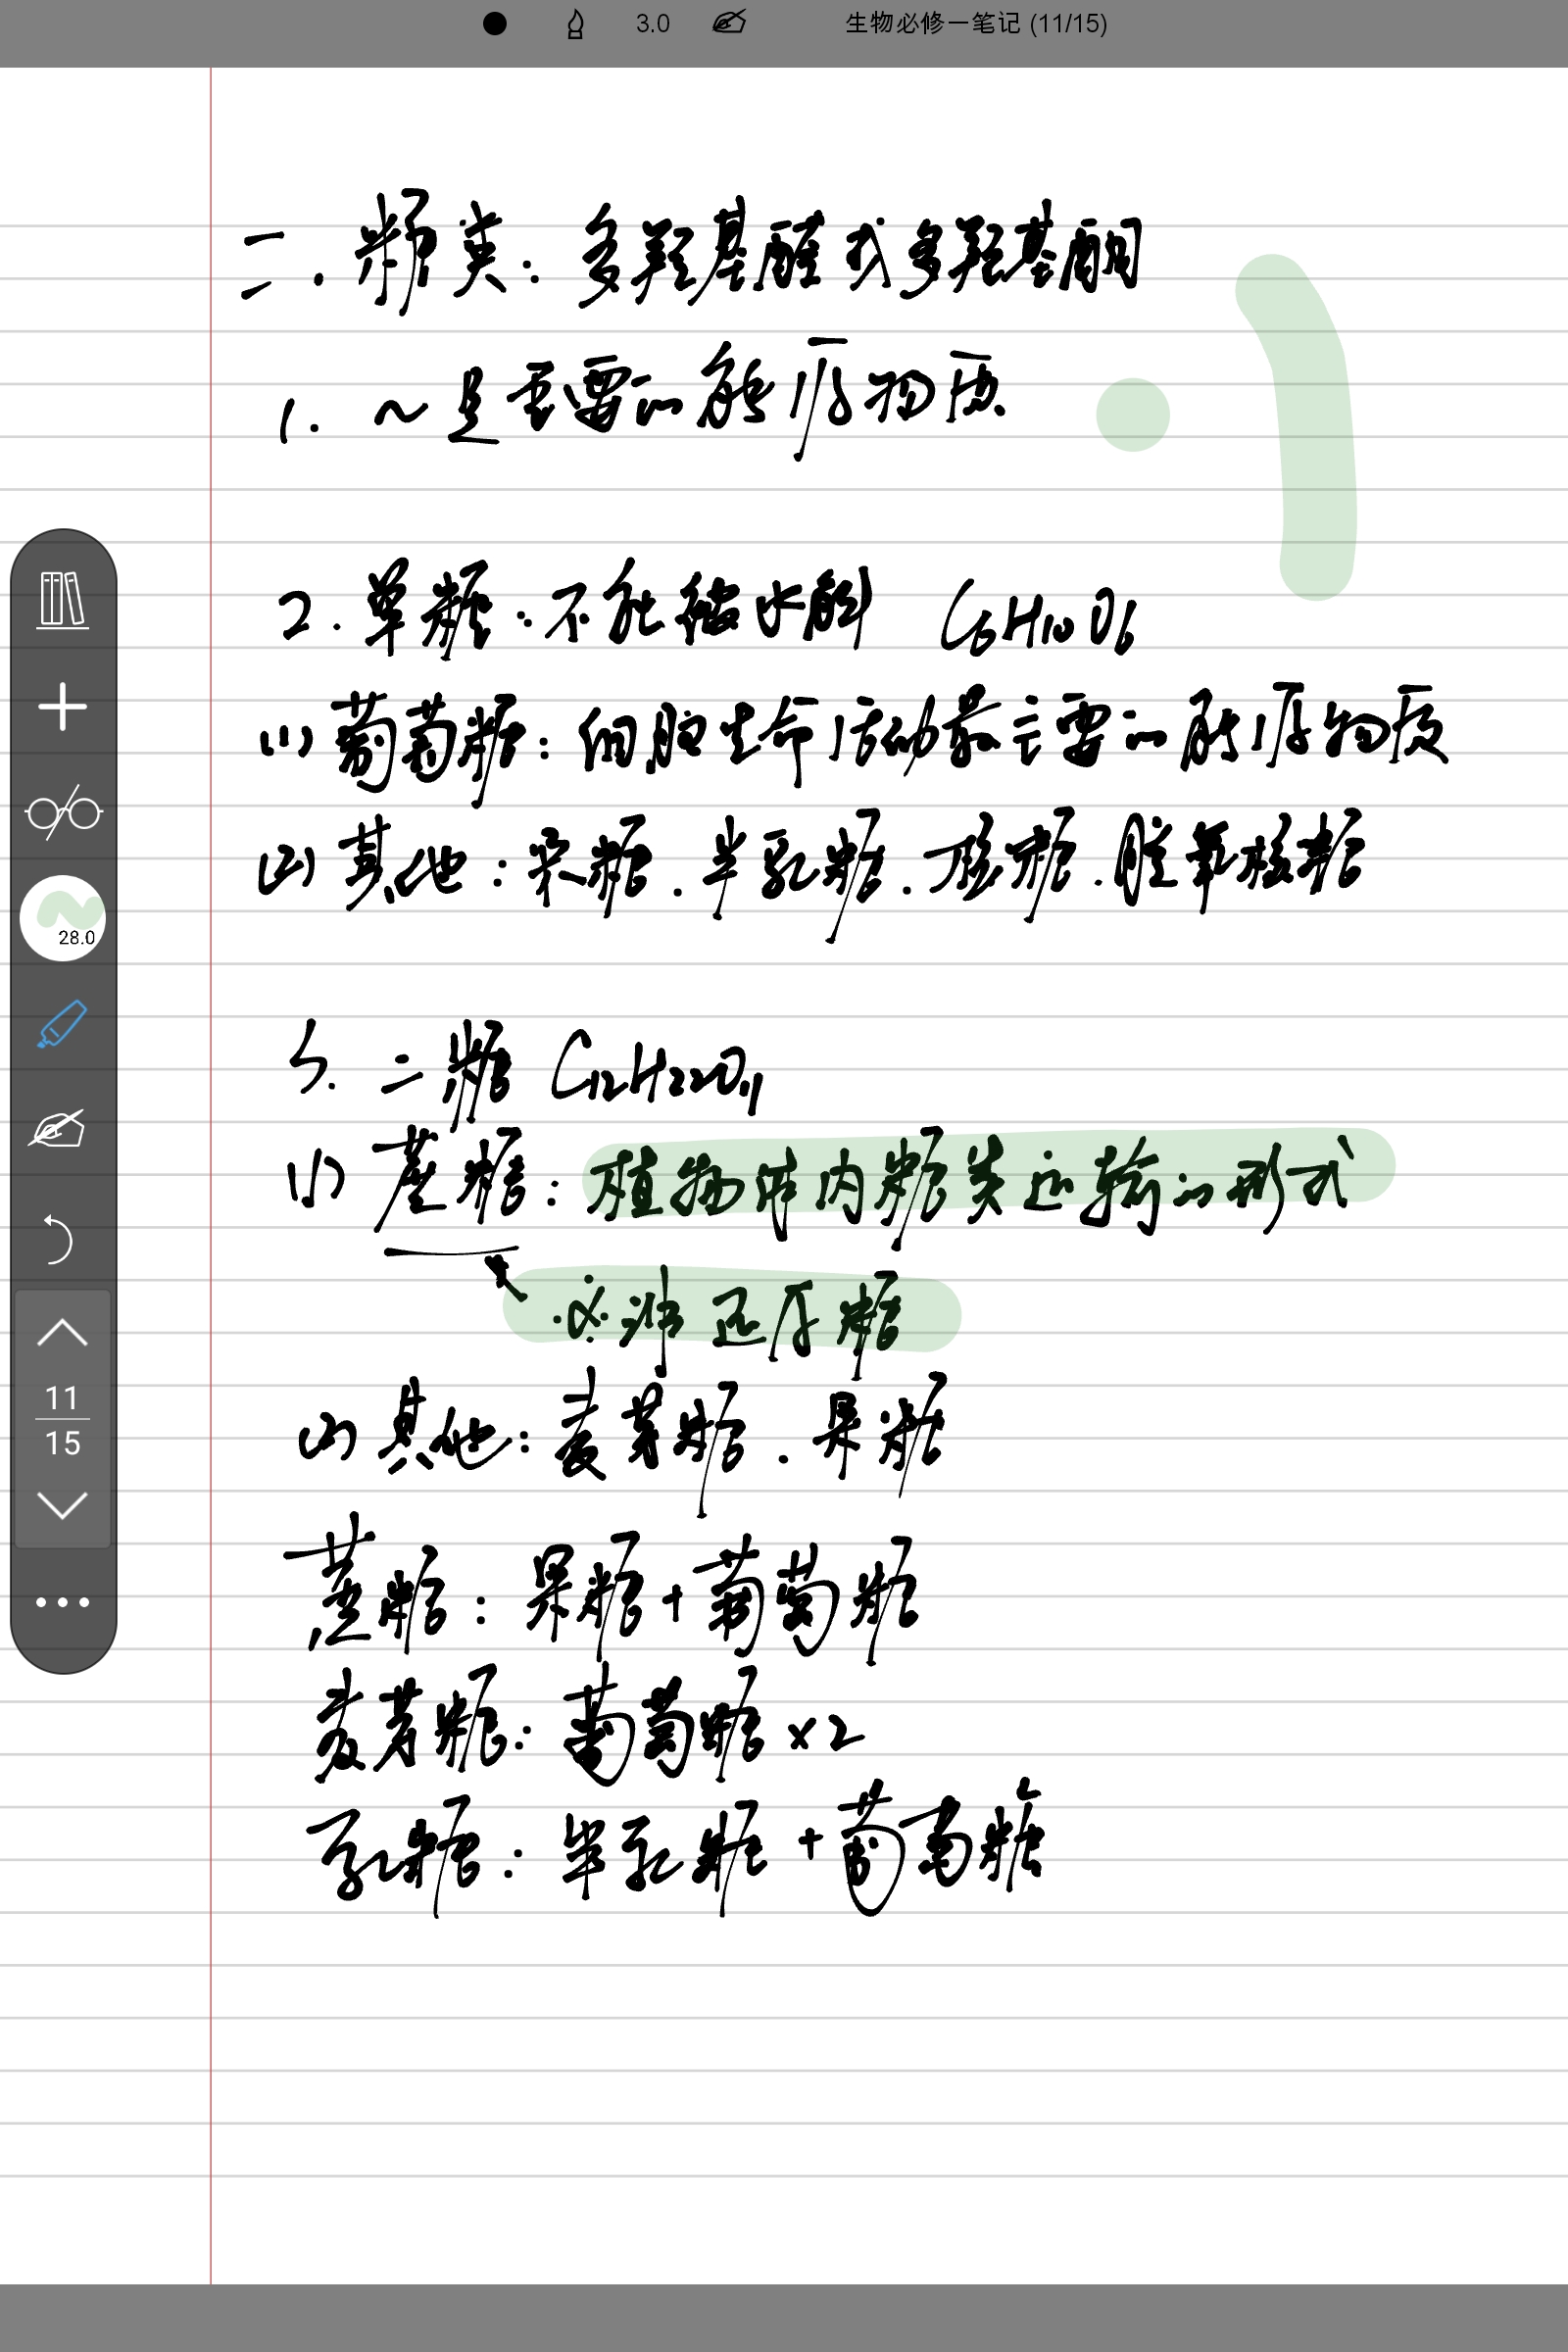 3.0 生物必修一笔记 (11/15)
二. 糖类: 多羟基醛或多羟基酮
1. ~是主要的能源物质
2. 单糖: 不能被水解 C6H10O6
(1) 葡萄糖: 细胞生命活动最主要的能源物质
(2) 其他: 果糖. 半乳糖. 核糖. 脱氧核糖
3. 二糖 C12H22O11
(1) 蔗糖: 植物体内糖类运输的形式
非还原糖
(2) 其他: 麦芽糖. 果糖
蔗糖: 果糖+葡萄糖
麦芽糖: 葡萄糖×2
乳糖: 半乳糖+葡萄糖
28.0
11
15